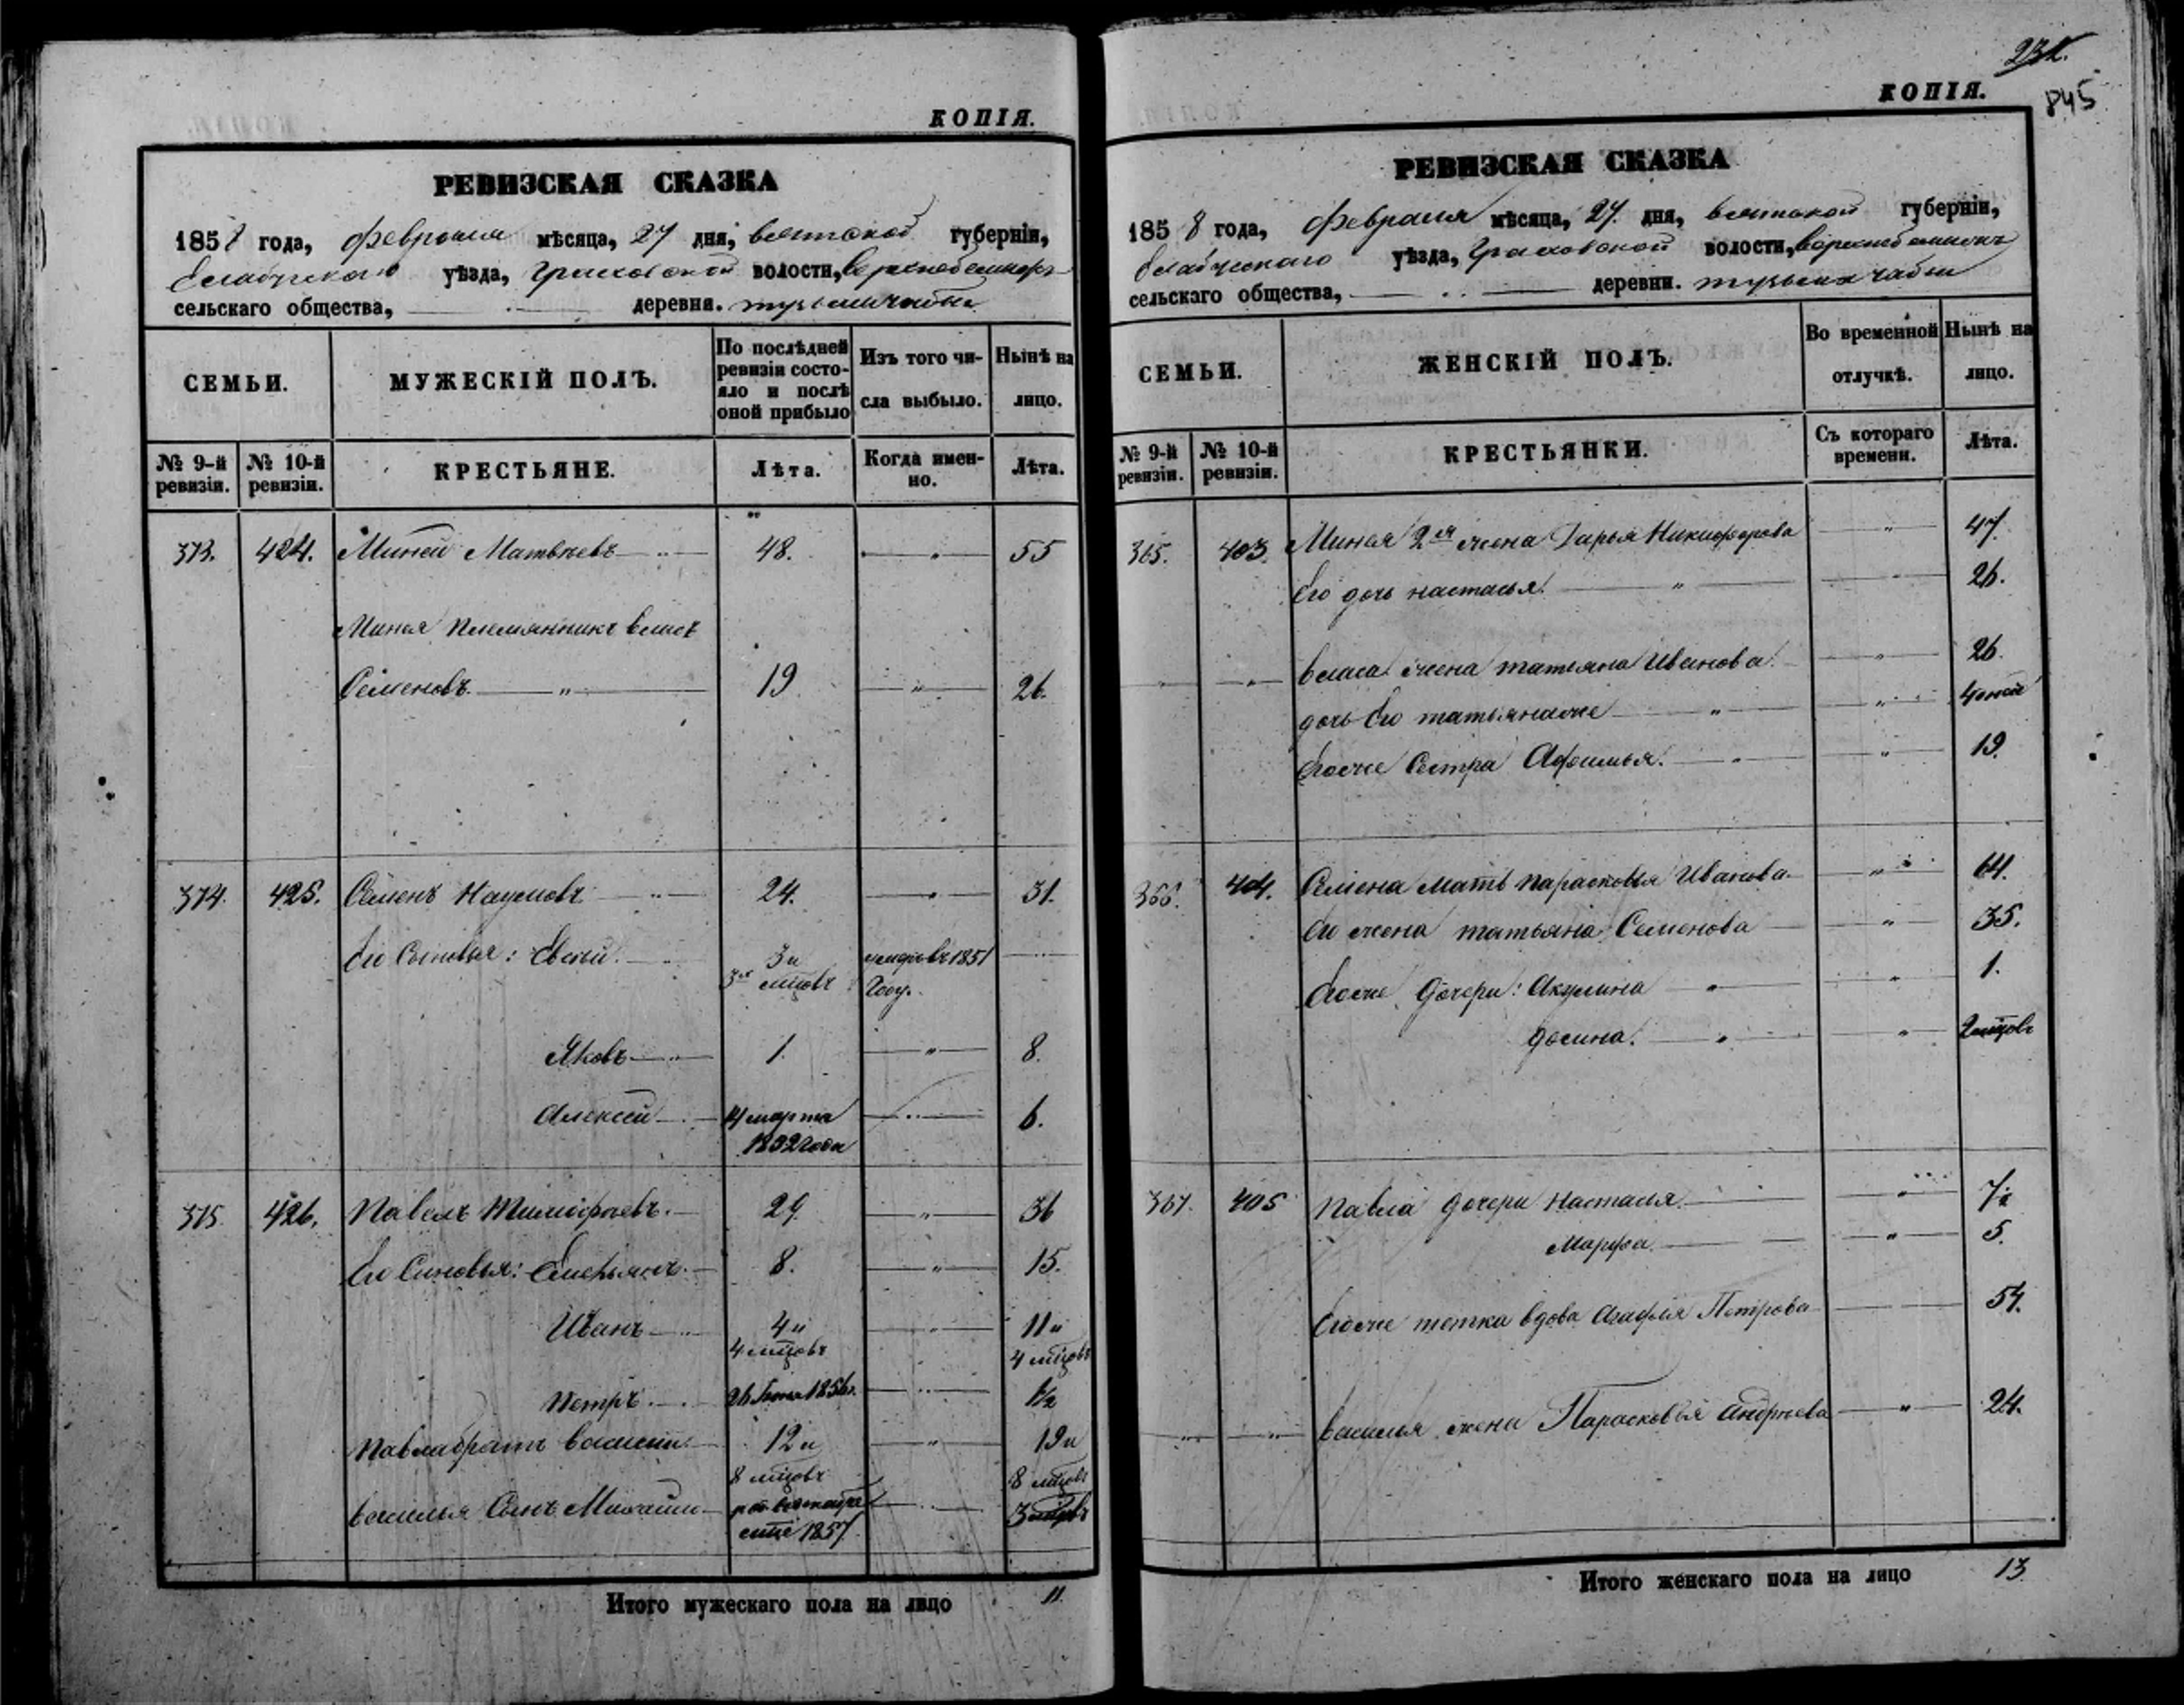 КОПІЯ.
РЕВИЗСКАЯ СКАЗКА
1858 года, февраля мѣсяца, 27 дня, вятской губерніи,
Елабугскаго уѣзда, Граховской волости,
сельскаго общества, деревни.
СЕМЬИ.
МУЖЕСКІЙ ПОЛЪ.
По послѣдней ревизіи состояло и послѣ оной прибыло
Изъ того числа выбыло.
Нынѣ на лицо.
№ 9-й ревизіи.
№ 10-й ревизіи.
КРЕСТЬЯНЕ.
Лѣта.
Когда именно.
Лѣта.
373. 424. Миней Матвѣевъ 48. 55
Минея племянникъ власъ
Семеновъ 19 26.
374. 425. Семенъ Наумовъ 24. 31.
Его Сыновья: 3 и умеръ въ 1851
3 мѣцовъ году.
Яковъ 1. 8.
Алексей 14 марта 6.
1852 года
375 426. Павелъ Тимофѣевъ. 29. 36
Его Сыновья: Емельянъ. 8. 15.
Иванъ 4 и 11 и
4 мѣцовъ 4 мѣцовъ
Петръ. 26 1856. 1/2
Павла братъ василий 12 и 19 и
8 мѣцовъ 8 мѣцовъ
василья Сынъ Михайло 3 мѣцовъ
1857.
Итого мужескаго пола на лицо 11.
232.
845
КОПІЯ.
РЕВИЗСКАЯ СКАЗКА
1858 года, февраля мѣсяца, 27 дня, вятской губерніи,
Елабугскаго уѣзда, Граховской волости,
сельскаго общества, деревни.
СЕМЬИ.
ЖЕНСКІЙ ПОЛЪ.
Во временной отлучкѣ.
Нынѣ на лицо.
№ 9-й ревизіи.
№ 10-й ревизіи.
КРЕСТЬЯНКИ.
Съ котораго времени.
Лѣта.
365. 403. Минея 2я жена Дарья Никифорова 47.
Его дочь настасья. 26.
власа жена татьяна Иванова. 26.
дочь Его татьянаже
Егоже Сестра Афимья. 19.
366. 404. Семена Мать парасковья Иванова 64.
Его жена татьяна Семенова 35.
Егоже дочери: Акулина 1.
2 мѣцовъ
367. 405 Павла дочери Настасия
Марфа 5.
Егоже тетка вдова Агафия Петрова 54.
василья жена Парасковья Андреева 24.
Итого женскаго пола на лицо 13